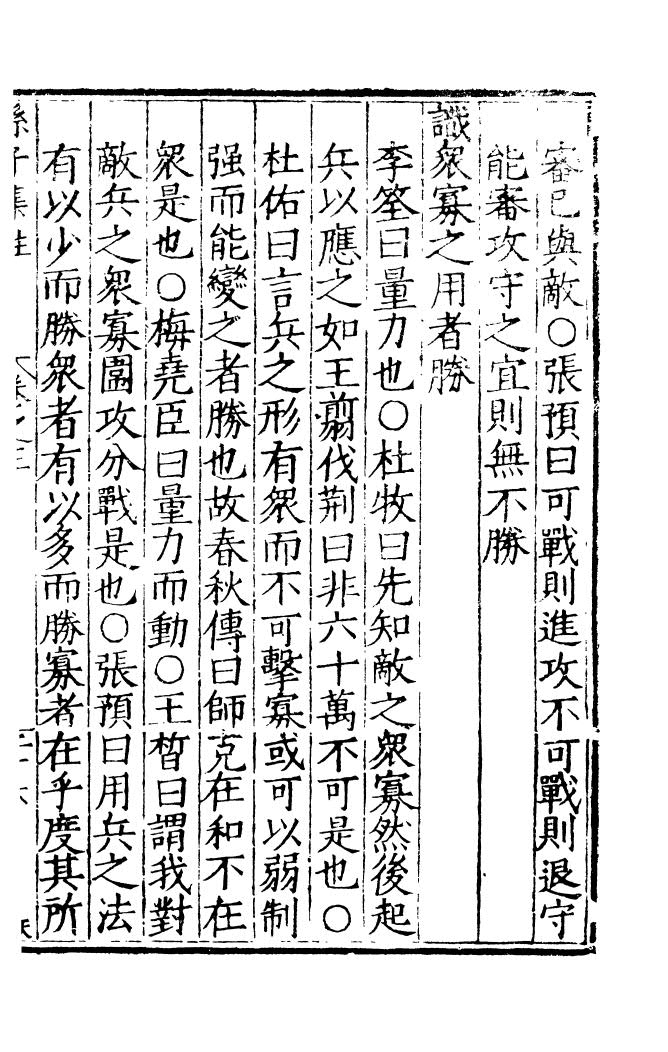 審已與敵○張預曰可戰則進攻不可戰則退守
能審攻守之宜則無不勝
識衆寡之用者勝
李筌曰量力也○杜牧曰先知敵之衆寡然後起
兵以應之如王翦伐荆曰非六十萬不可是也○
杜佑曰言兵之形有衆而不可擊寡或可以弱制
强而能變之者勝也故春秋傳曰師克在和不在
衆是也○梅堯臣曰量力而動○王晳曰謂我對
敵兵之衆寡圍攻分戰是也○張預曰用兵之法
有以少而勝衆者有以多而勝寡者在乎度其所
孫子集註 卷之三